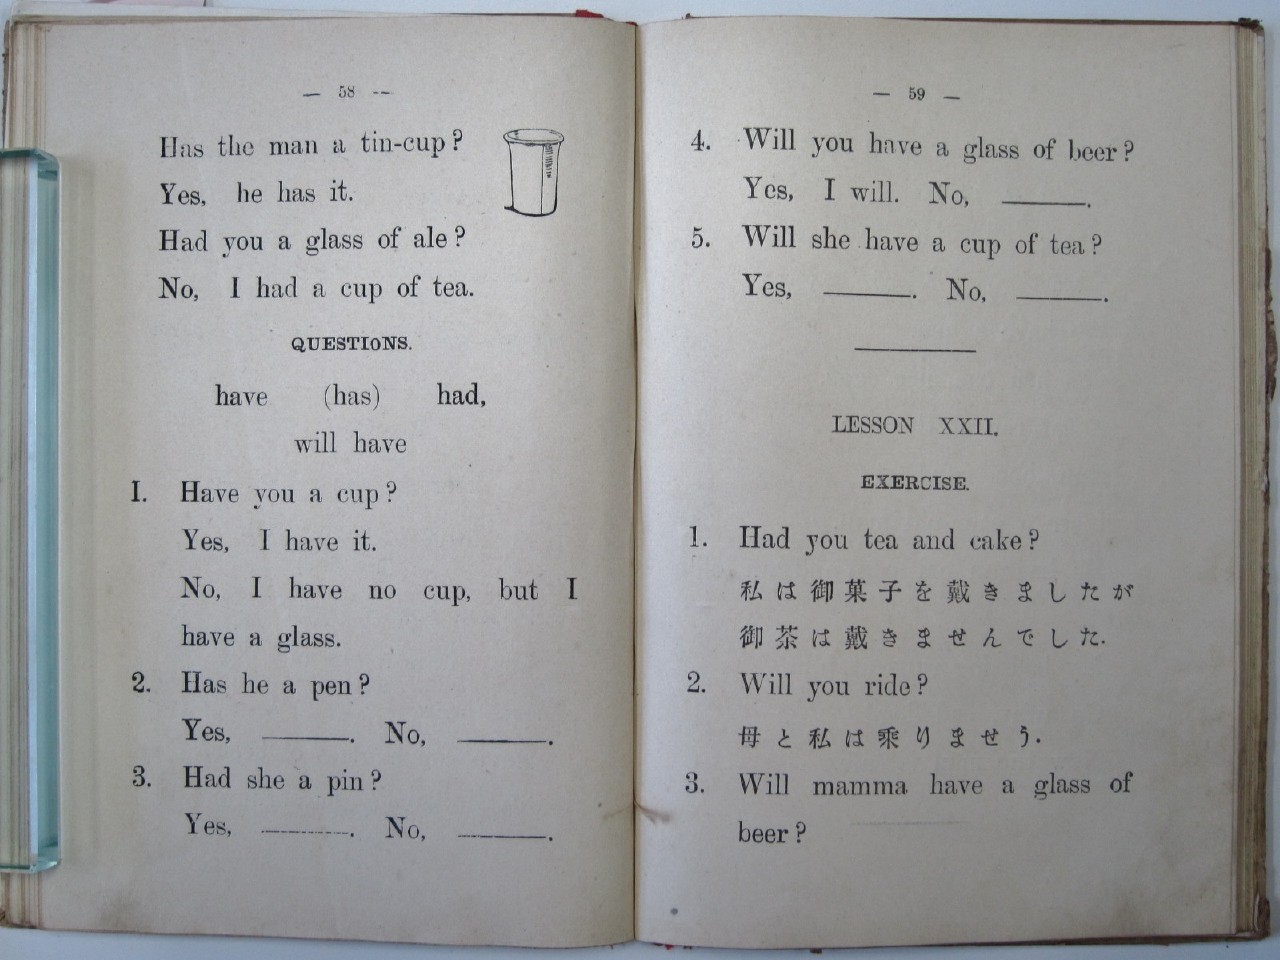 — 58 —
Has the man a tin-cup?
Yes, he has it.
Had you a glass of ale?
No, I had a cup of tea.
QUESTIONS.
have (has) had,
will have
1. Have you a cup?
Yes, I have it.
No, I have no cup, but I
have a glass.
2. Has he a pen?
Yes, ———. No, ———.
3. Had she a pin?
Yes, ———. No, ———.
— 59 —
4. Will you have a glass of beer?
Yes, I will. No, ———.
5. Will she have a cup of tea?
Yes, ———. No, ———.
LESSON XXII.
EXERCISE.
1. Had you tea and cake?
私は御菓子を戴きましたが
御茶は戴きませんでした.
2. Will you ride?
母と私は乘りませう.
3. Will mamma have a glass of
beer?